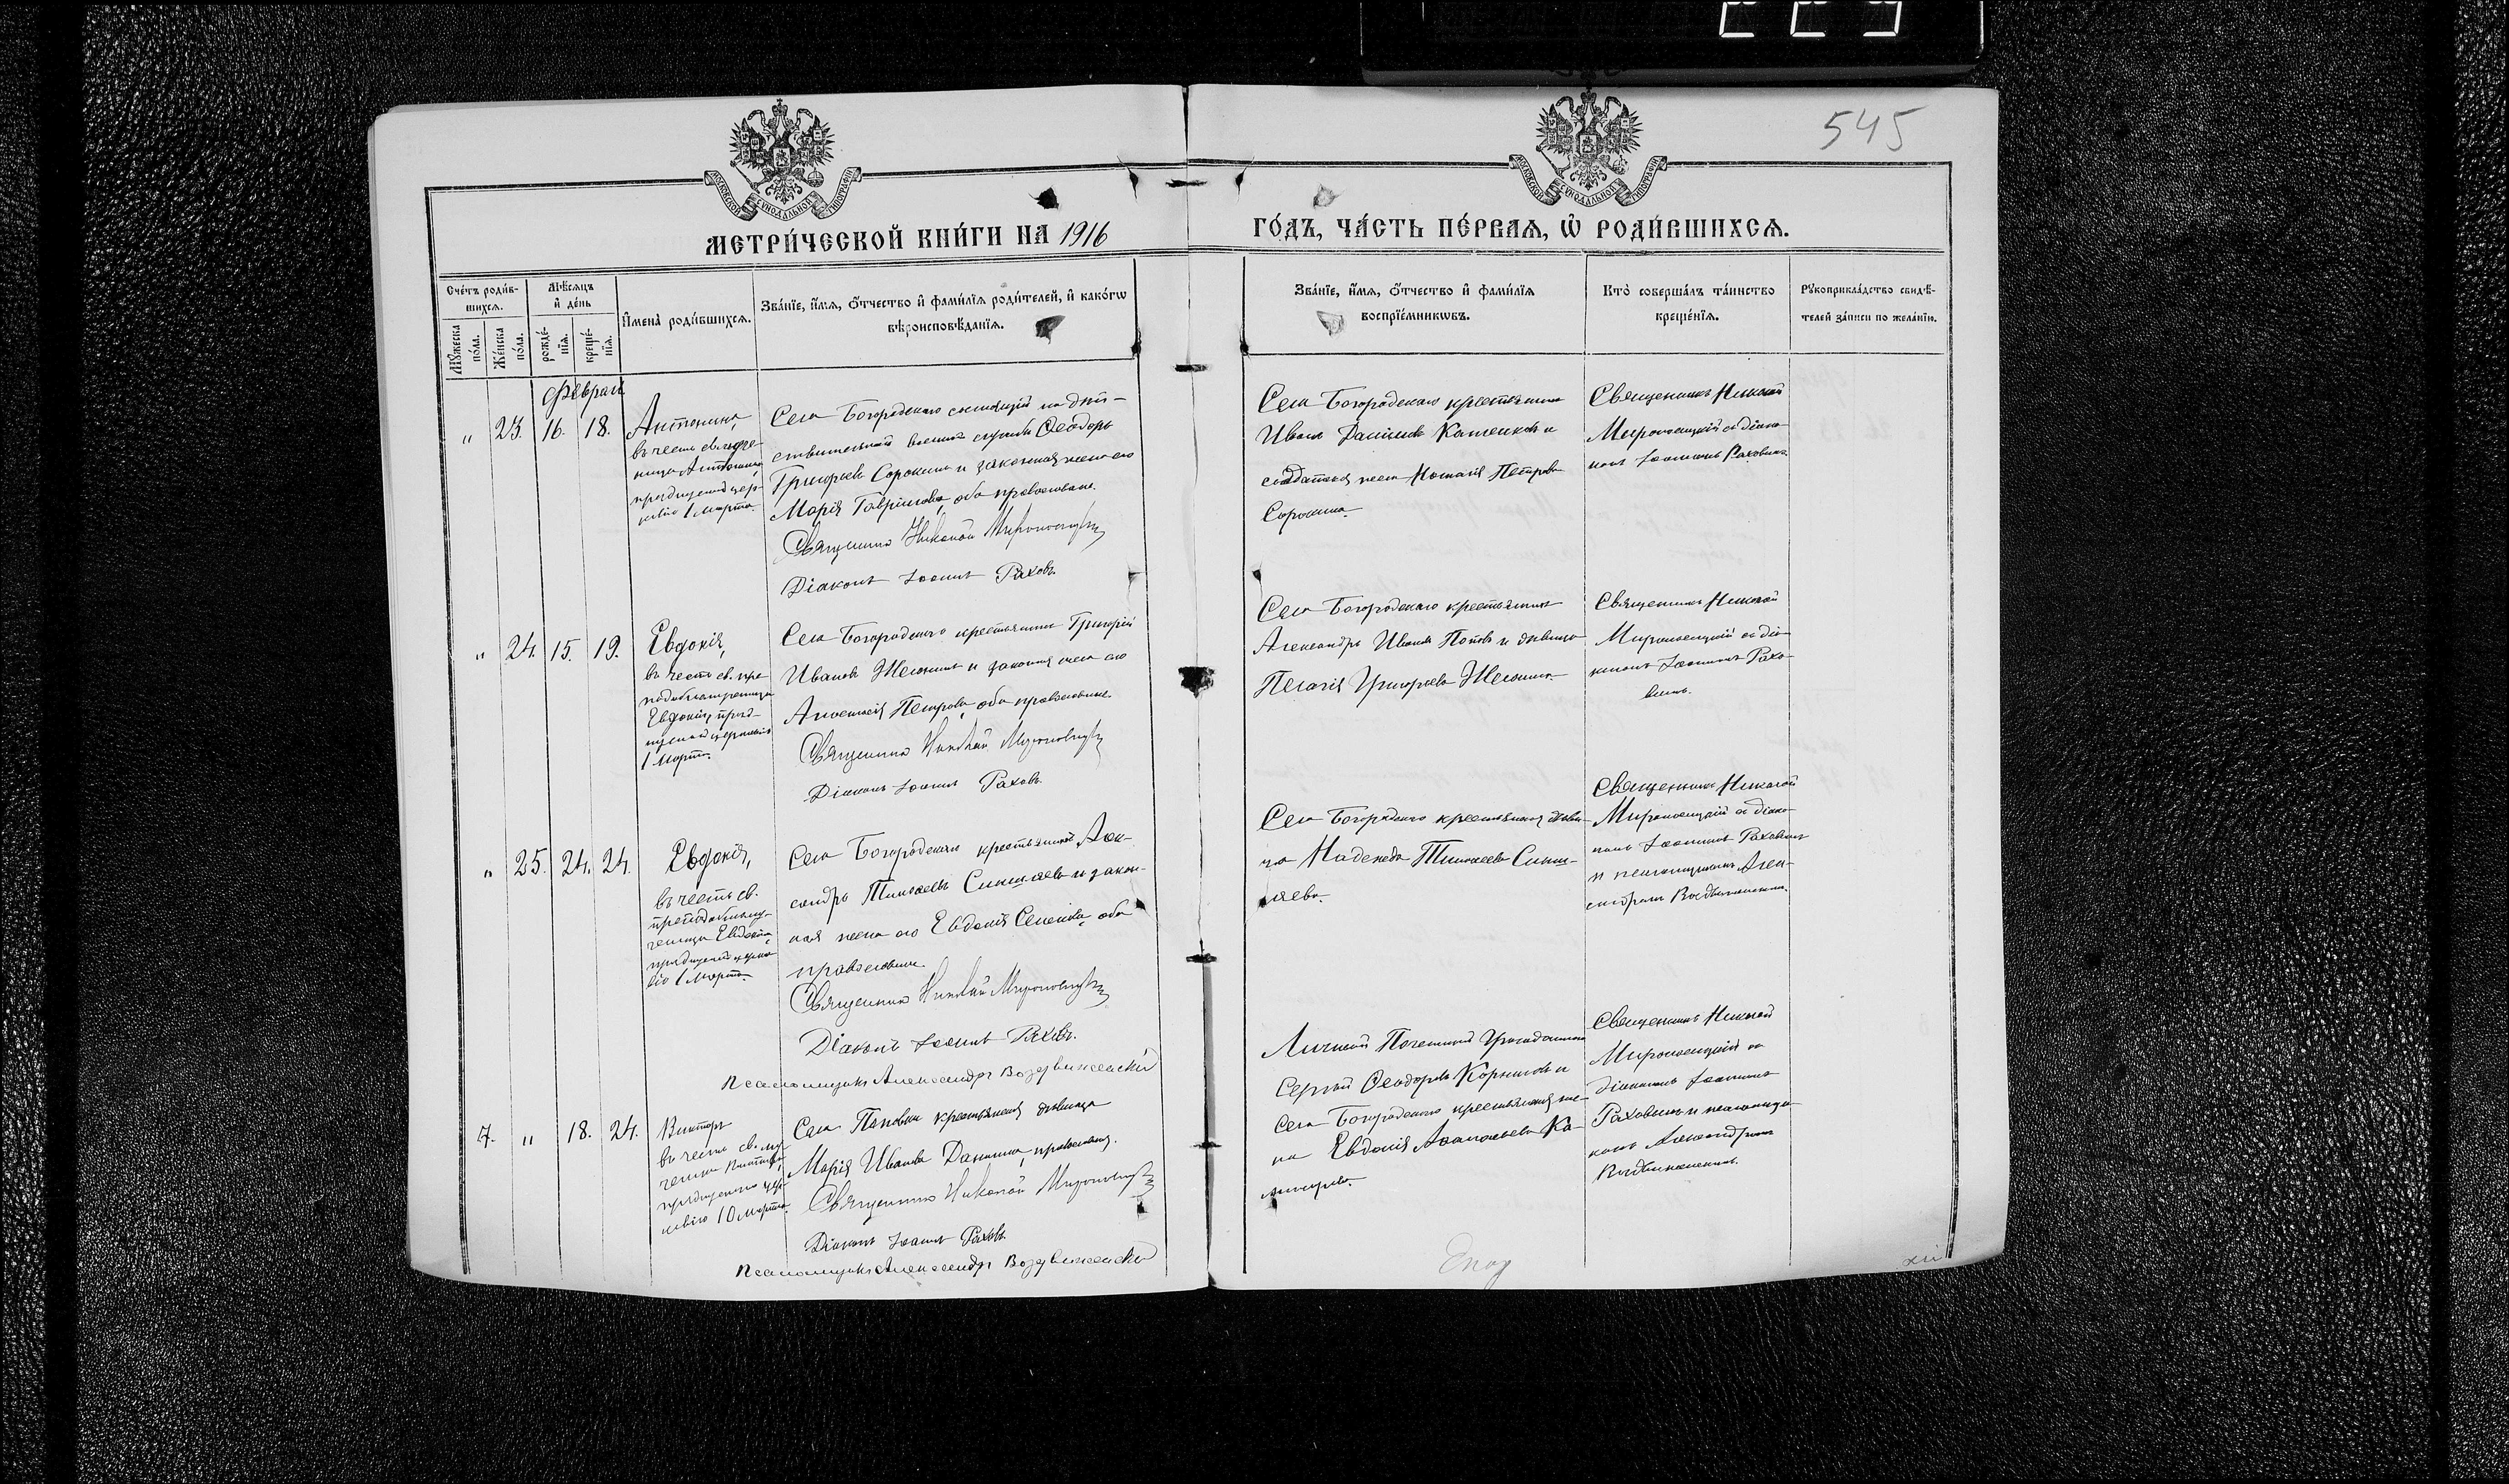 545
МОСКОВСКОЙ СѴНОДАЛЬНОЙ ТИПОГРАФІИ
МОСКОВСКОЙ СѴНОДАЛЬНОЙ ТИПОГРАФІИ
МЕТРИ́ЧЕСКОЙ КНИ́ГИ НА 1916
ГО́ДЪ, ЧА́СТЬ ПЕ́РВАѦ, Ѡ РОДИ́ВШИХСѦ.
Сче́тъ роди́в-
шихсѧ.
Мꙋ́жеска
по́ла.
Же́нска
по́ла.
Мѣ́сѧцъ
и҆ де́нь
рожде́-
нїѧ.
креще́-
нїѧ.
И҆мена̀ роди́вшихсѧ.
Зва́нїе, и҆́мѧ, ѻ҆́тчество и҆ фами́лїѧ роди́телей, и҆ како́гѡ
вѣроисповѣ́данїѧ.
Зва́нїе, и҆́мѧ, ѻ҆́тчество и҆ фами́лїѧ
воспрїе́мникѡвъ.
Кто̀ соверша́лъ та́инство
креще́нїѧ.
Рꙋкоприкла́дство свидѣ́-
телей за́писи по жела́нїю.
Февраля
" 23. 16. 18.
Антонина,
въ честь св.
1 марта
Села Богородскаго состоящій на дѣй-
ствительной военной службѣ Ѳеодоръ
Григорьевъ Сорокинъ и законная жена его
Марія Гавріилова, оба православные.
Священникъ Николай Мироносицкій
Діаконъ Іоаннъ Раховъ.
Села Богородскаго крестьянинъ
Иванъ
солдатская жена Петрова
Сорокина.
Священникъ Николай
Мироносицкій съ діако-
номъ Іоанномъ Раховымъ
" 24. 15. 19.
Евдокія,
въ честь св. пре-
подобномученицы
Евдокіи, празд-
нуемой церковію
1 марта.
Села Богородскаго крестьянинъ Григорій
Ивановъ и законная жена его
Петрова, оба православные.
Священникъ Николай Мироносицкій
Діаконъ Іоаннъ Раховъ.
Села Богородскаго крестьянинъ
Александръ Ивановъ Поповъ и дѣвица
Пелагія Григорьева
Священникъ Николай
Мироносицкій съ діа-
кономъ Іоанномъ Рахо-
вымъ.
" 25. 24. 24.
Евдокія,
въ честь св.
преподобному-
ченицы Евдокіи,
празднуемой церко-
вію 1 марта.
Села Богородскаго крестьянинъ Алек-
сандръ и закон-
ная жена его Евдокія Семенова, оба
православные.
Священникъ Николай Мироносицкій
Діаконъ Іоаннъ Раховъ.
Псаломщикъ Александръ Воздвиженскій
Села Богородскаго крестьянская дѣви-
ца Надежда
Священникъ Николай
Мироносицкій съ діако-
номъ Іоанномъ Раховымъ
и псаломщикомъ Алек-
сандромъ Воздвиженскимъ.
7. " 18. 24.
Викторъ
въ честь св. му-
ченика Виктора,
празднуемаго цер-
ковію 10 марта.
Села Поповки крестьянская дѣвица
Марія Иванова православная.
Священникъ Николай Мироносицкій
Діаконъ Іоаннъ Раховъ.
Псаломщикъ Александръ Воздвиженскій
Личный Почетный Гражданинъ
Сергѣй Ѳеодоровъ Корниловъ и
села Богородскаго крестьянская же-
на Евдокія
Священникъ Николай
Мироносицкій съ
діакономъ Іоанномъ
Раховымъ и псаломщи-
комъ Александромъ
Воздвиженскимъ.